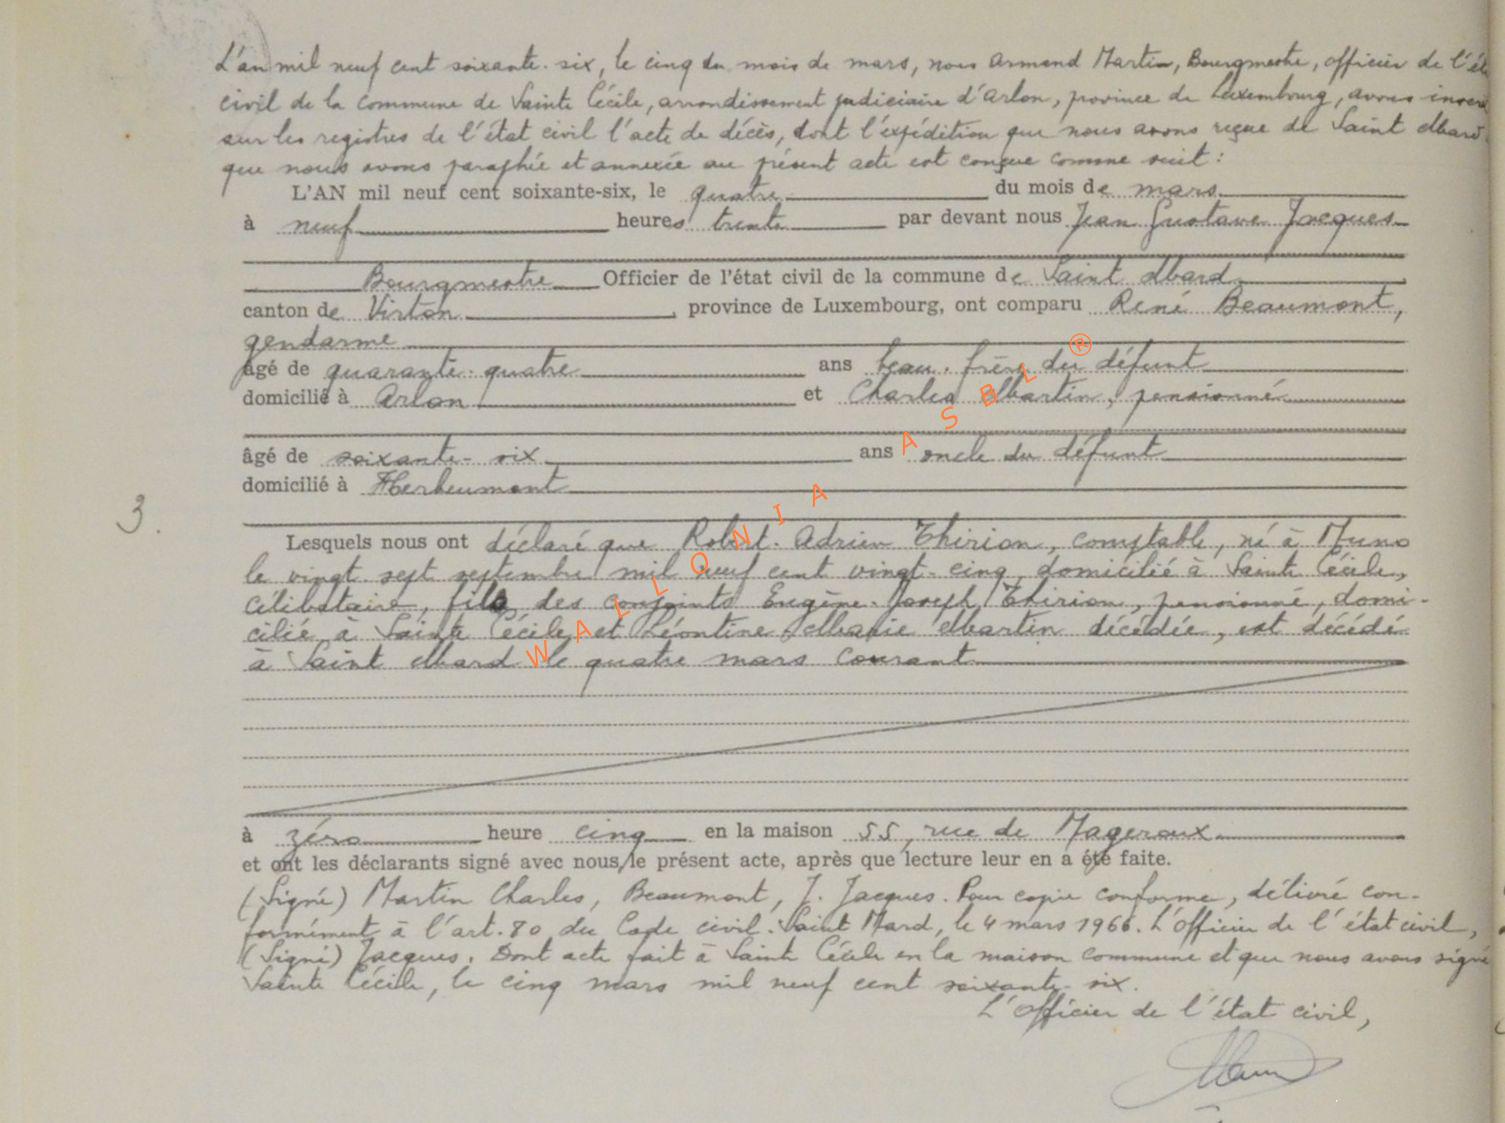 L'an mil neuf cent soixante-six, le cinq du mois de mars, nous Armand Martin, Bourgmestre, officier de l'ét
civil de la commune de Sainte Cécile, arrondissement judiciaire d'Arlon, province de Luxembourg, avons inscrit
sur les registres de l'état civil l'acte de décès, dont l'expédition que nous avons reçue de Saint Mard
que nous avons paraphée et annexée au présent acte est conçue comme suit :
L'AN mil neuf cent soixante-six, le quatre du mois de mars
à neuf heures trente par devant nous Jean Gustave Jacques
Bourgmestre Officier de l'état civil de la commune de Saint Mard
canton de Virton, province de Luxembourg, ont comparu René Beaumont,
gendarme
âgé de quarante-quatre ans beau-frère du défunt
domicilié à Arlon et Charles Martin, pensionné
âgé de soixante-six ans oncle du défunt
domicilié à Herbeumont
3.
Lesquels nous ont déclaré que Robert-Adrien Thirion, comptable, né à Muno
le vingt-sept septembre mil neuf cent vingt-cinq, domicilié à Sainte Cécile,
célibataire, fils des conjoints Eugène-Joseph Thirion, pensionné, domi-
cilié à Sainte Cécile et Léontine Marie Martin décédée, est décédé
à Saint Mard le quatre mars courant
à zéro heure cinq en la maison 55, rue de Mageroux
et ont les déclarants signé avec nous, le présent acte, après que lecture leur en a été faite.
(Signé) Martin Charles, Beaumont, J. Jacques. Pour copie conforme, délivré con-
formément à l'art. 80 du Code civil. Saint Mard, le 4 mars 1966. L'officier de l'état civil,
(Signé) Jacques. Dont acte fait à Sainte Cécile en la maison commune et que nous avons signé
Sainte Cécile, le cinq mars mil neuf cent soixante-six.
L'Officier de l'état civil,
WALLONIA ASBL ®